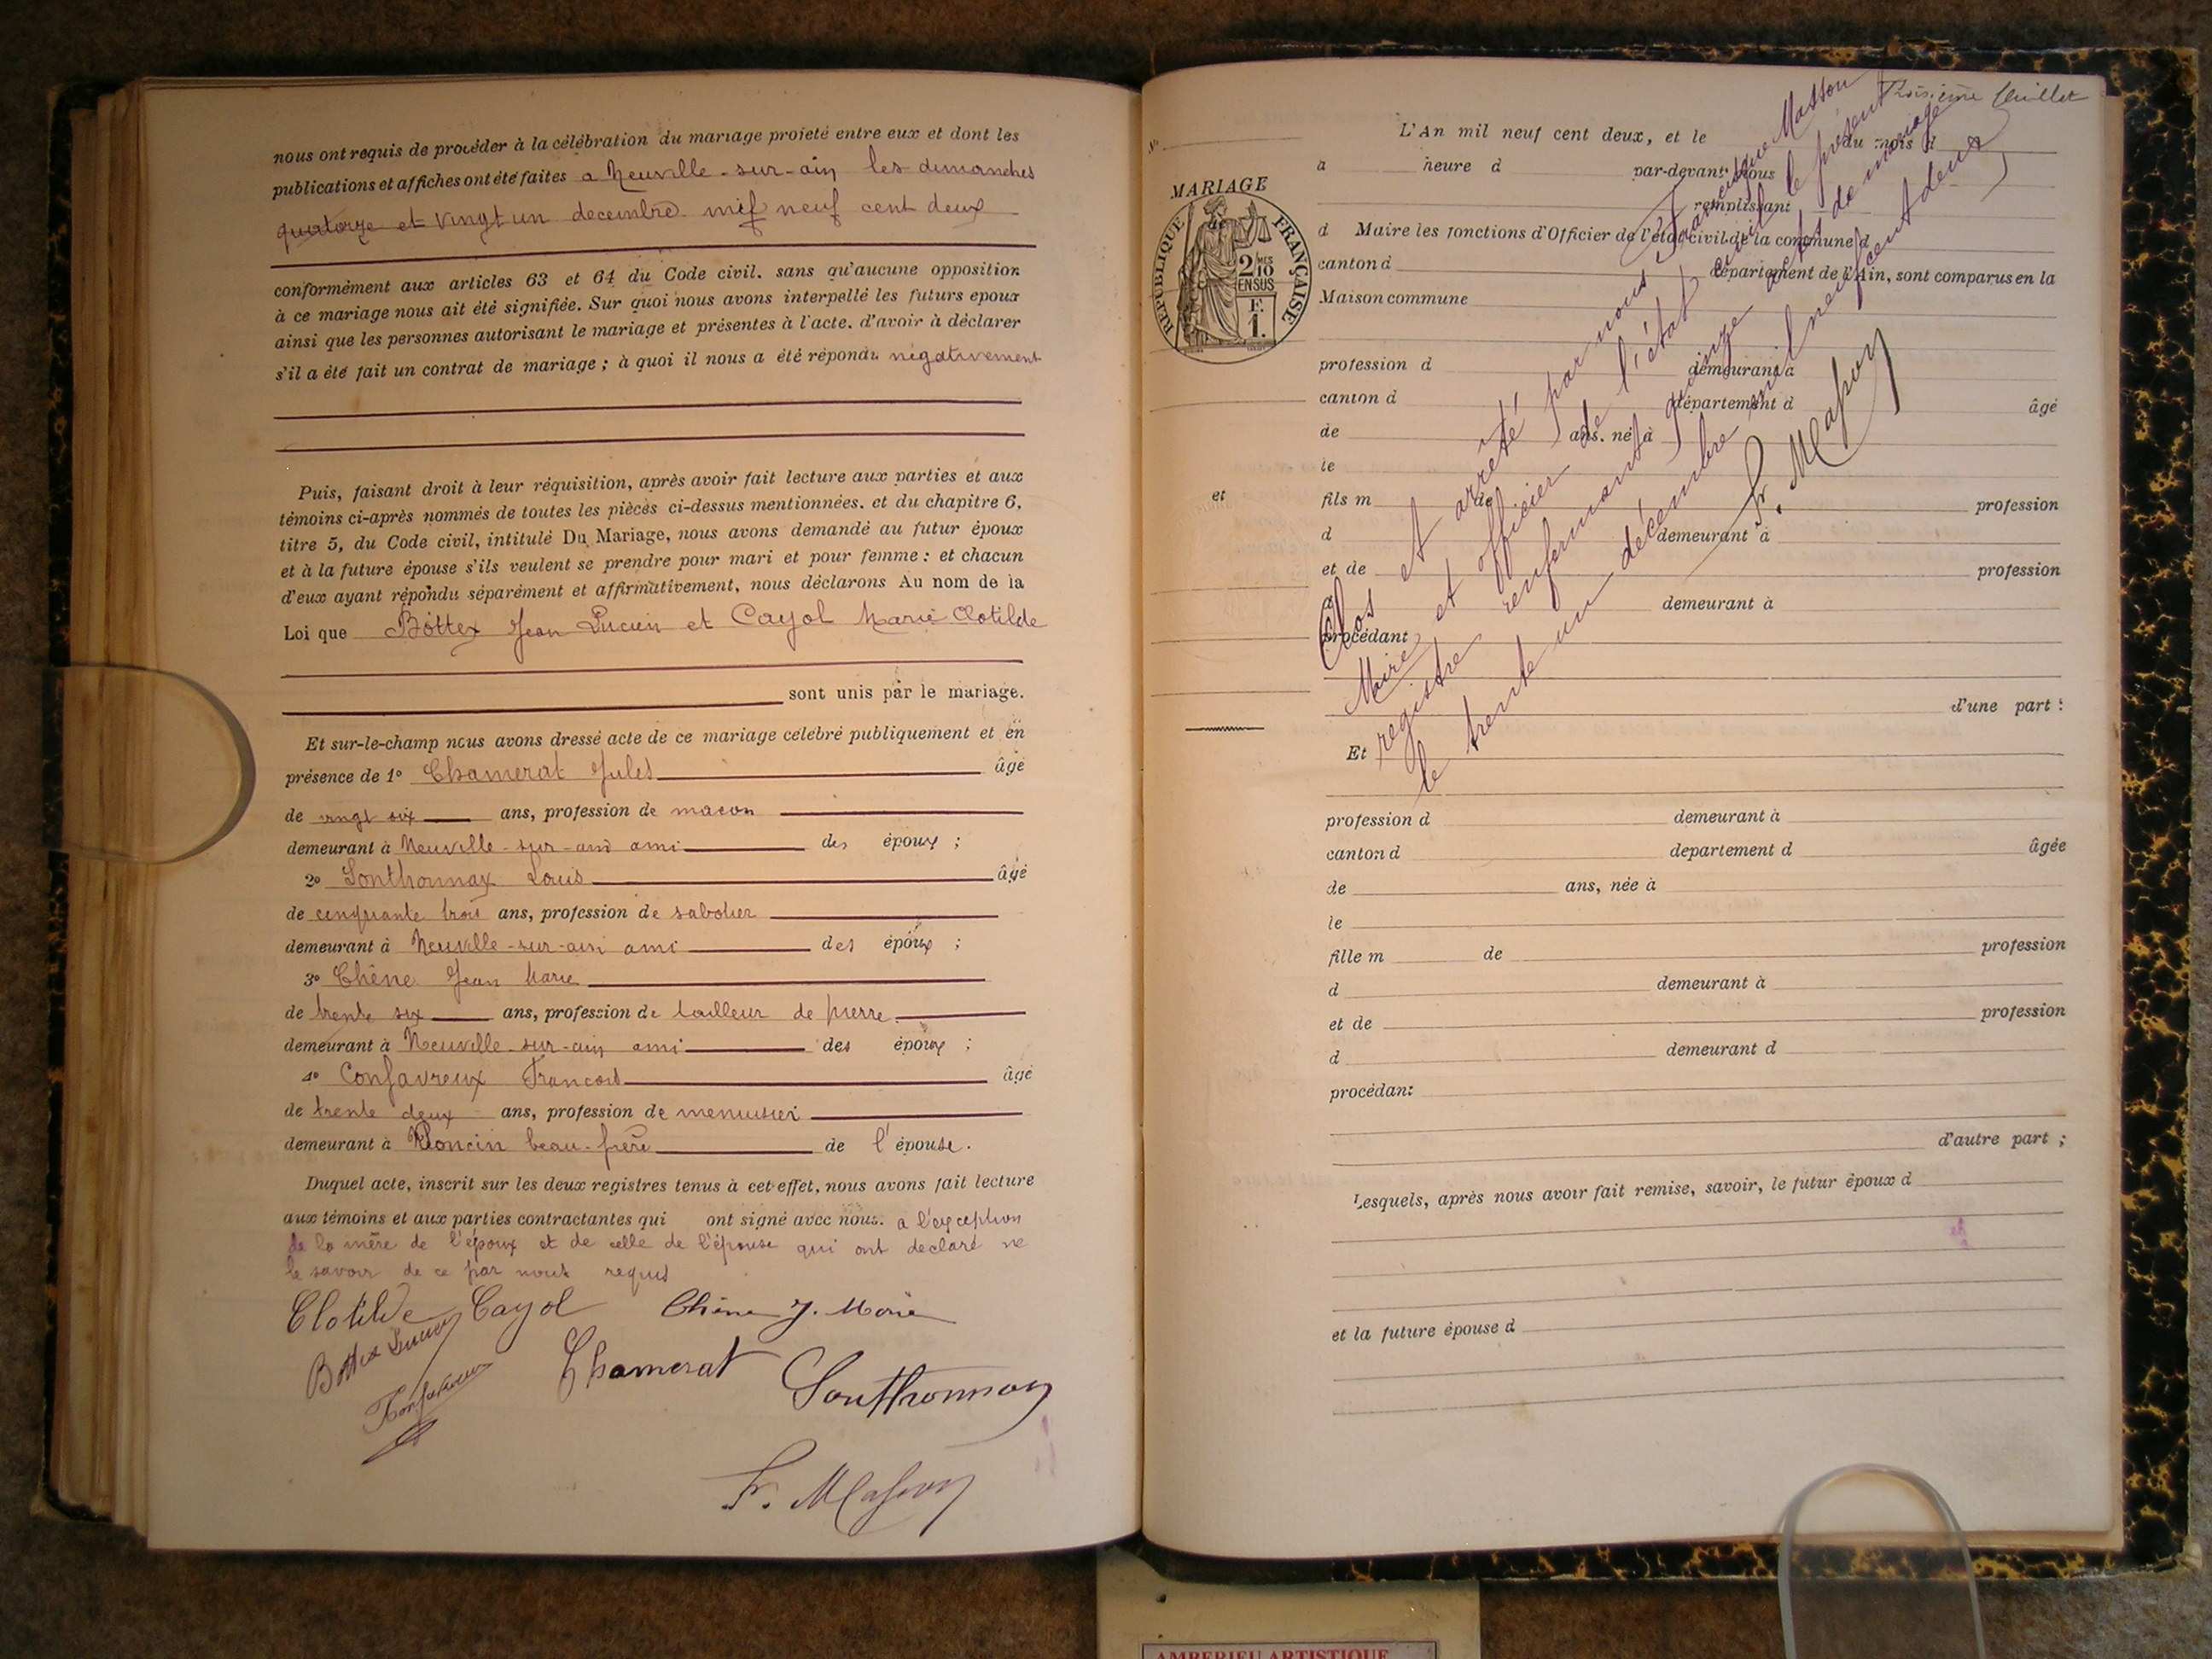 nous ont requis de procéder à la célébration du mariage projeté entre eux et dont les
publications et affiches ont été faites a Neuville-sur-ain les dimanches
quatorze et vingt un decembre mil neuf cent deux
conformément aux articles 63 et 64 du Code civil. sans qu'aucune opposition
à ce mariage nous ait été signifiée. Sur quoi nous avons interpellé les futurs epoux
ainsi que les personnes autorisant le mariage et présentes à l'acte. d'avoir à déclarer
s'il a été fait un contrat de mariage ; à quoi il nous a été répondu négativement
Puis, faisant droit à leur réquisition, après avoir fait lecture aux parties et aux
témoins ci-après nommés de toutes les pièces ci-dessus mentionnées. et du chapitre 6,
titre 5, du Code civil, intitulé Du Mariage, nous avons demandé au futur époux
et à la future épouse s'ils veulent se prendre pour mari et pour femme : et chacun
d'eux ayant répondu séparément et affirmativement, nous déclarons Au nom de la
Loi que Bottex Jean Lucien et Cayol Marie Clotilde
sont unis par le mariage.
Et sur-le-champ nous avons dressé acte de ce mariage célébré publiquement et en
présence de 1° Chamerat Jules âgé
de vingt six ans, profession de macon
demeurant à Neuville-sur-ain ami des époux ;
2° Sonthonnax Louis âgé
de cinquante trois ans, profession de sabotier
demeurant à Neuville-sur-ain ami des époux ;
3° Chêne Jean Marie
de trente six ans, profession de tailleur de pierre
demeurant à Neuville-sur-ain ami des époux ;
4° Confavreux Francois âgé
de trente deux ans, profession de menuisier
demeurant à Poncin beau-frère de l'épouse.
Duquel acte, inscrit sur les deux registres tenus à cet effet, nous avons fait lecture
aux témoins et aux parties contractantes qui ont signé avec nous. a l'exception
de la mère de l'époux et de celle de l'épouse qui ont declaré ne
le savoir de ce par nous requis
Clotilde Cayol Chêne J. Marie
Bottex Lucien
Confavreux
Chamerat Sonthonnax
Fr. Masson
Troisième feuillet
N°
MARIAGE
REPUBLIQUE FRANÇAISE
2/10 MES
EN SUS
F.
1.
L'An mil neuf cent deux, et le du mois d
a heure d par-devant nous
remplissant
d Maire les fonctions d'Officier de l'état civil de la commune d
canton d département de l'Ain, sont comparus en la
Maison commune
profession d demeurant à
canton d département d âgé
de ans. né à
le
et fils m de profession
d demeurant à
et de profession
d demeurant à
procédant
d'une part :
Et
Clos et arrêté par nous Francisque Masson
Maire et officier de l'état civil le présent
registre renfermant quinze actes de mariage
le trente un décembre mil neuf cent deux
Fr. Masson
profession d demeurant à
canton d departement d âgée
de ans, née à
le
fille m de profession
d demeurant à
et de profession
d demeurant d
procédant
d'autre part ;
Lesquels, après nous avoir fait remise, savoir, le futur époux d
et la future épouse d
AMBERIEU ARTISTIQUE